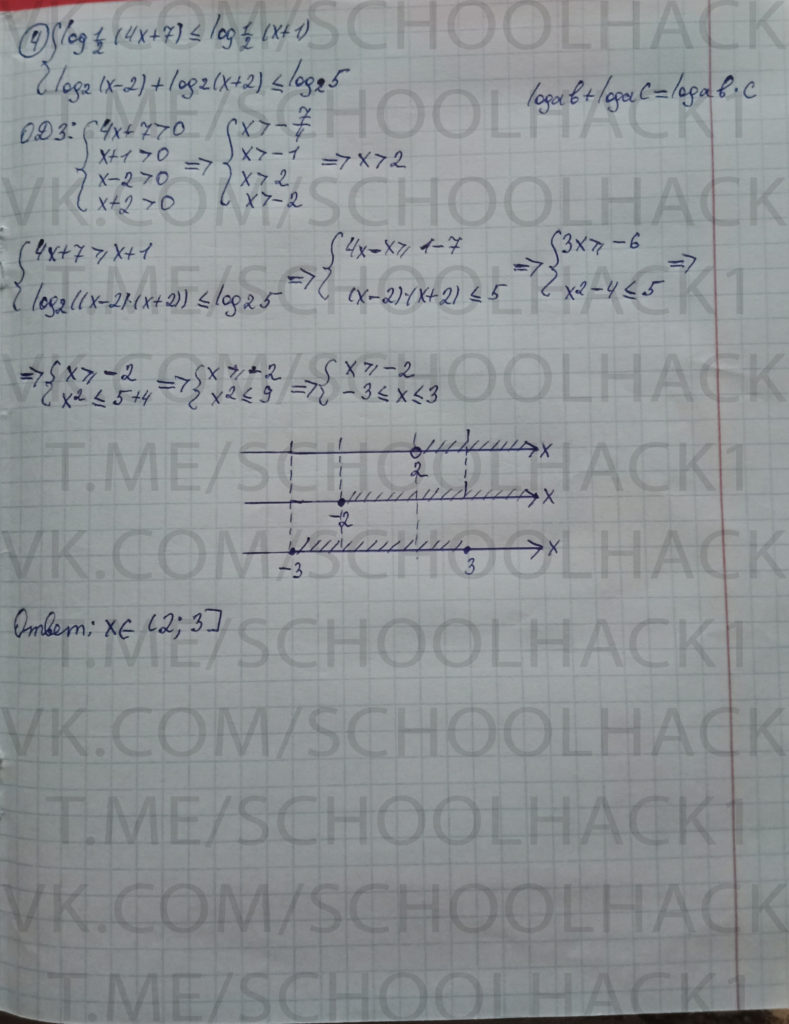 ④ { log 1/2 (4x+7) ≤ log 1/2 (x+1)
{ log2 (x-2) + log2(x+2) ≤ log2 5
logab + logac = logab·c
ОДЗ: { 4x+7>0 x+1>0 x-2>0 x+2>0 => { x>-7/4 x>-1 x>2 x>-2 => x>2
{ 4x+7 ⩾ x+1 => { 4x-x ⩾ 1-7 => { 3x ⩾ -6 =>
{ log2((x-2)·(x+2)) ≤ log2 5 { (x-2)·(x+2) ≤ 5 { x2-4 ≤ 5
=> { x ⩾ -2 => { x ⩾ -2 => { x ⩾ -2
{ x2 ≤ 5+4 { x2 ≤ 9 { -3 ≤ x ≤ 3
x
2
x
-2
x
-3 3
Ответ: x∈ (2; 3]
T.ME/SCHOOLHACK1
VK.COM/SCHOOLHACK
T.ME/SCHOOLHACK1
VK.COM/SCHOOLHACK
T.ME/SCHOOLHACK1
VK.COM/SCHOOLHACK
T.ME/SCHOOLHACK1
VK.COM/SCHOOLHACK
T.ME/SCHOOLHACK1
VK.COM/SCHOOLHACK
T.ME/SCHOOLHACK1